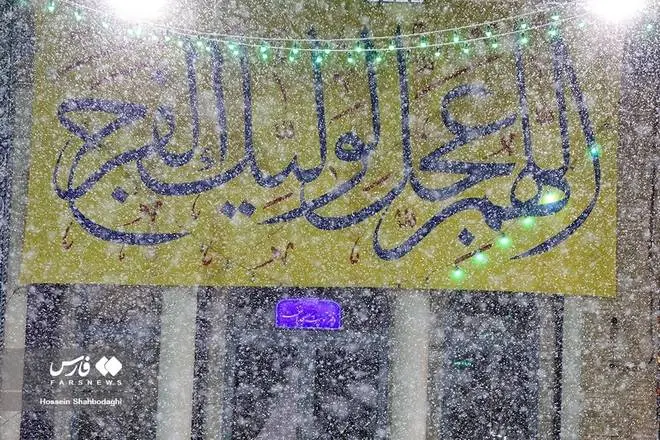 اللهم عجل لولیک الفرج
فارس
FARSNEWS
Hossein Shahbodaghi